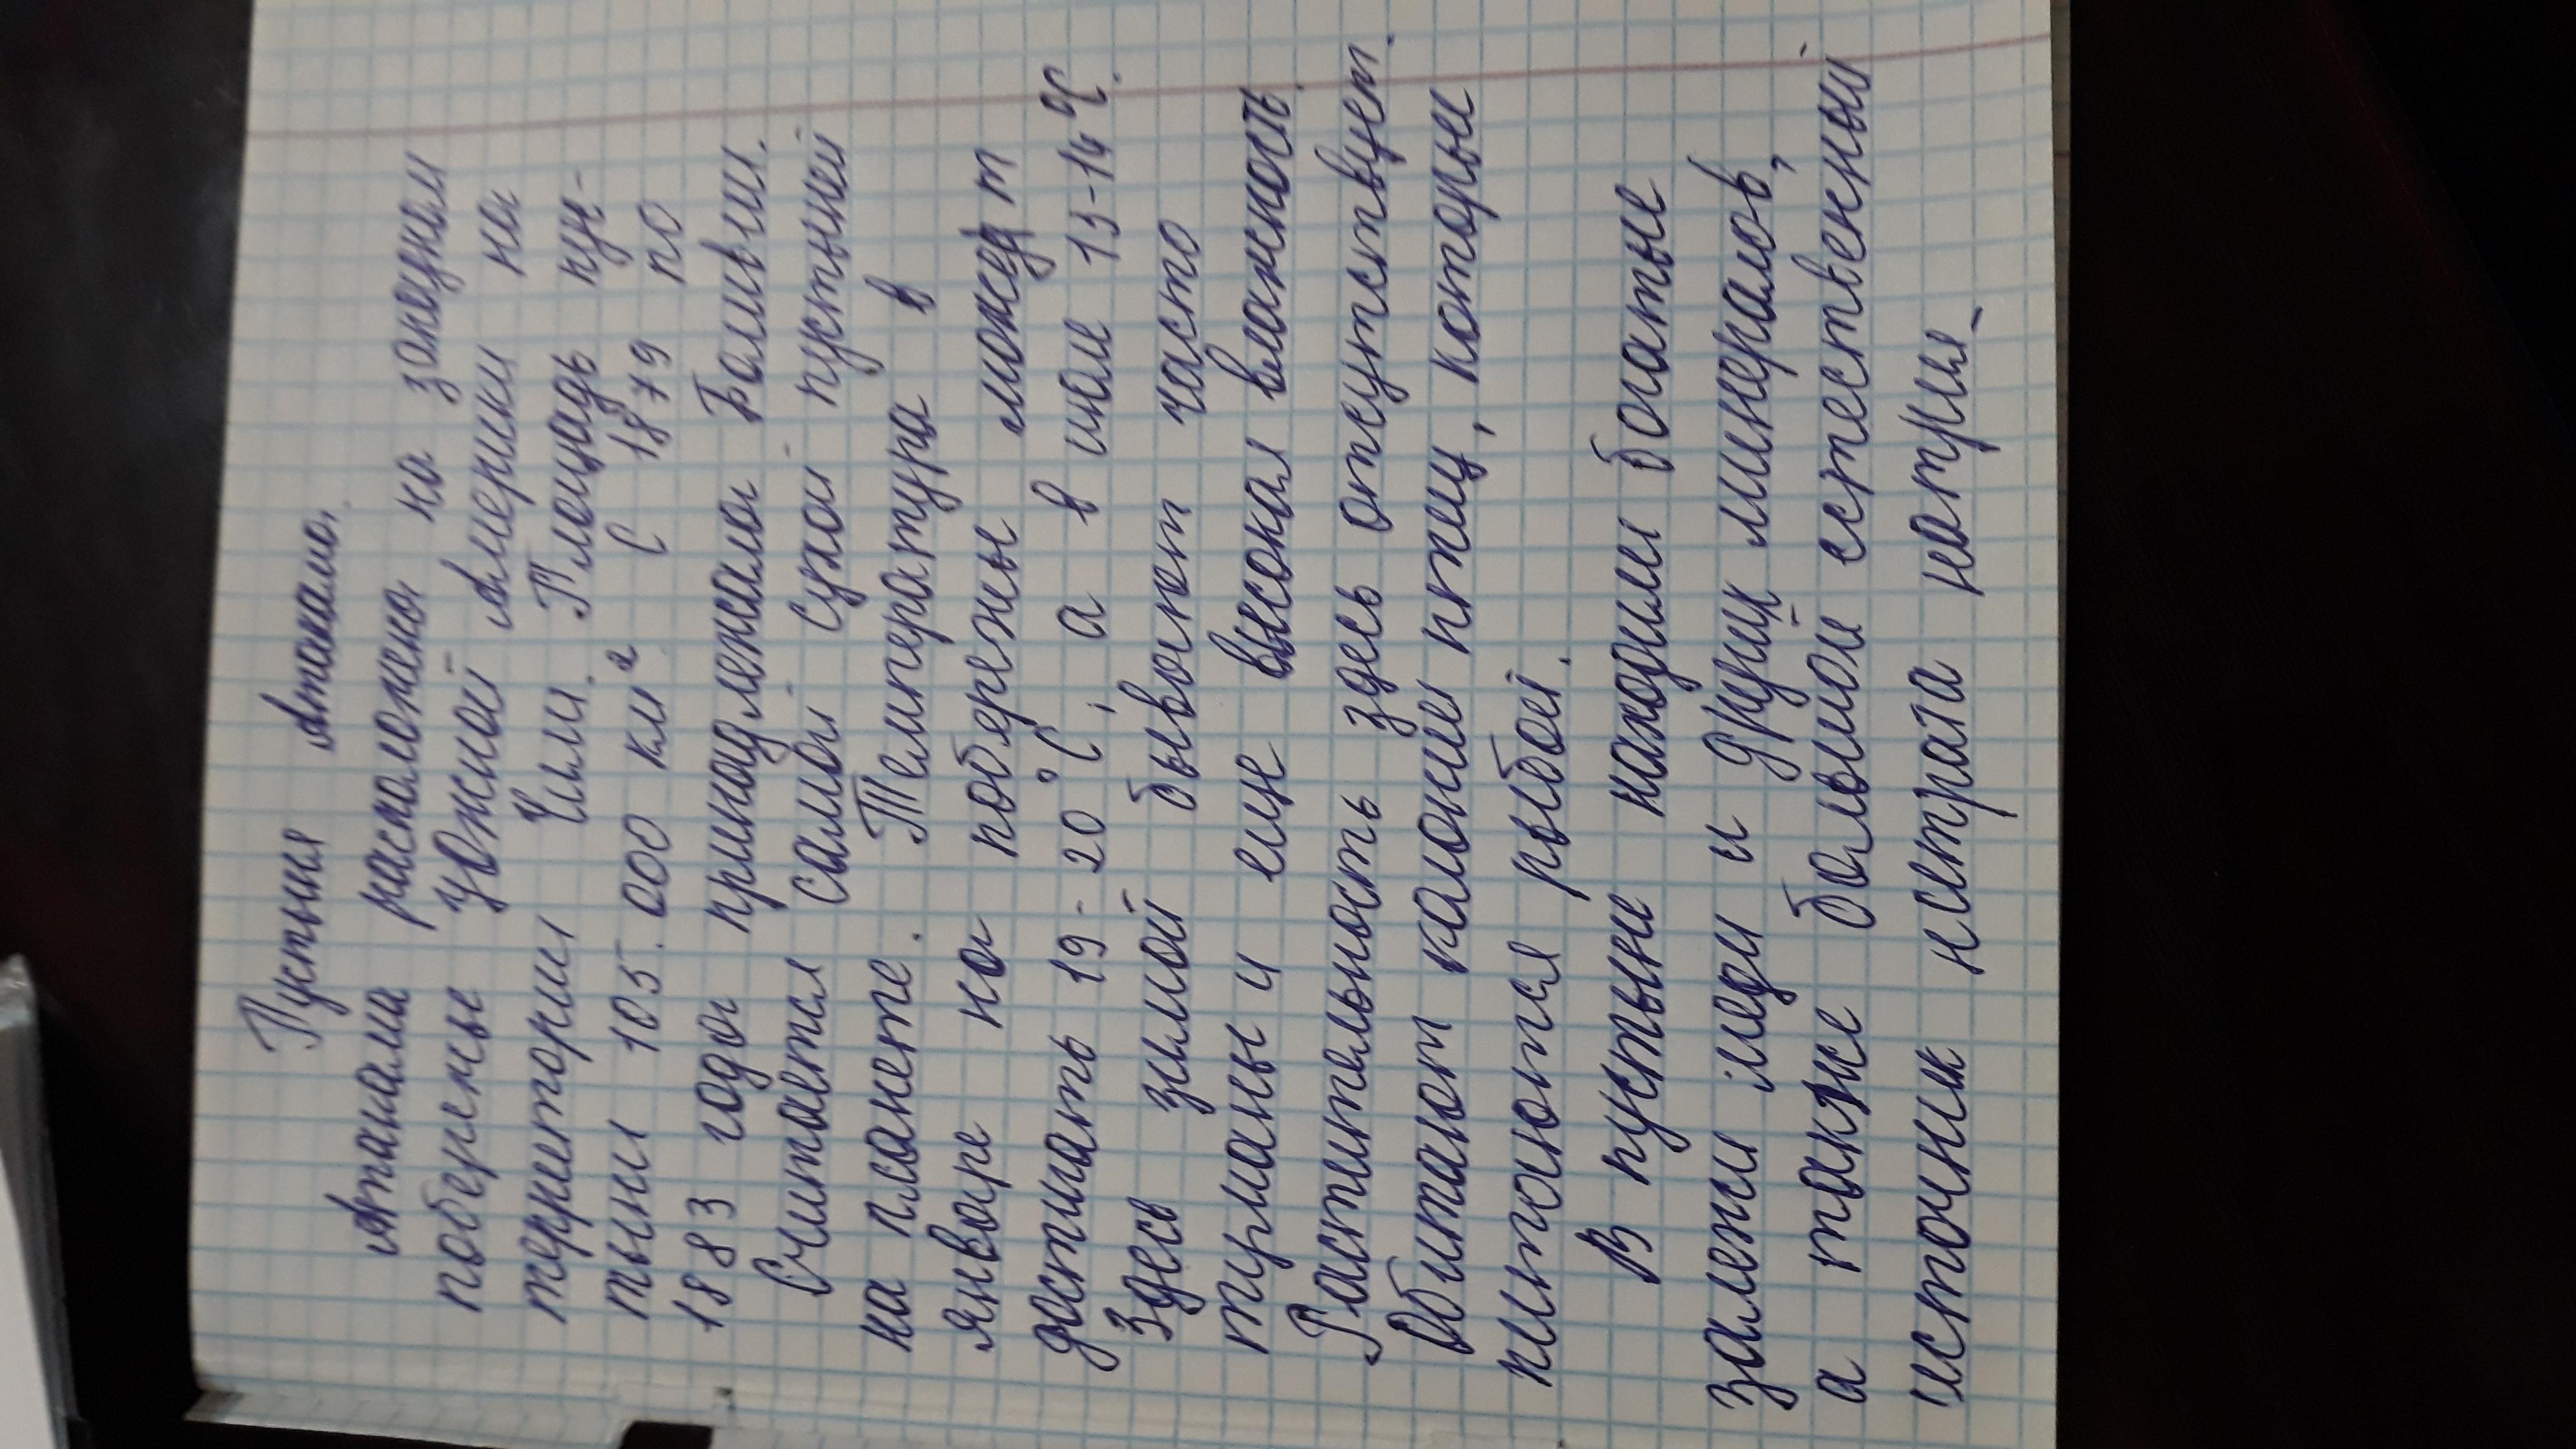 Пустыня Атакама.
Атакама расположена на западном
побережье Южной Америки на
территории Чили. Площадь пус-
тыни 105.000 км². С 1879 по
1883 года принадлежала Боливии.
Считается самой сухой пустыней
на планете. Температура в
январе на побережье может
достигать 19-20°C, а в июле 13-14°C.
Здесь зимой бывают часто
туманы и еще высокая влажность.
Растительность здесь отсутствует.
Обитают колонии птиц, которые
питаются рыбой.
В пустыне находили богатые
залежи меди и других минералов,
а также большой естественный
источник нитрата натрия.